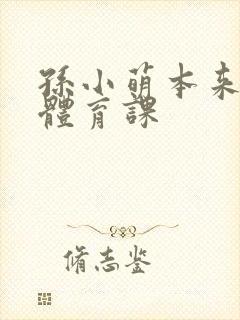 孫小萌本来
體育課
脩志鉴